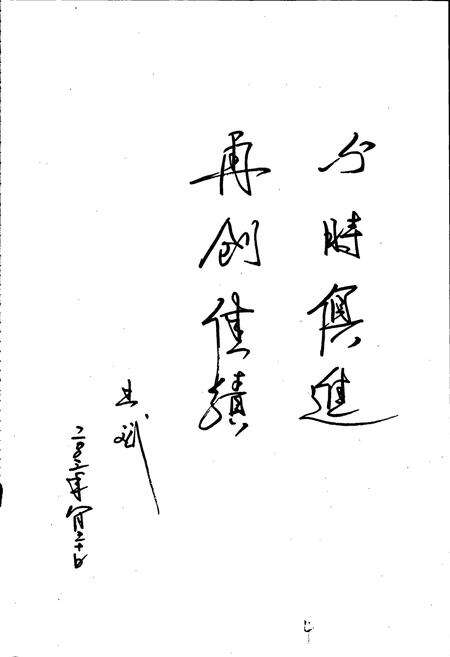 与時俱進
再創佳績
二〇〇三年八月二十日
4